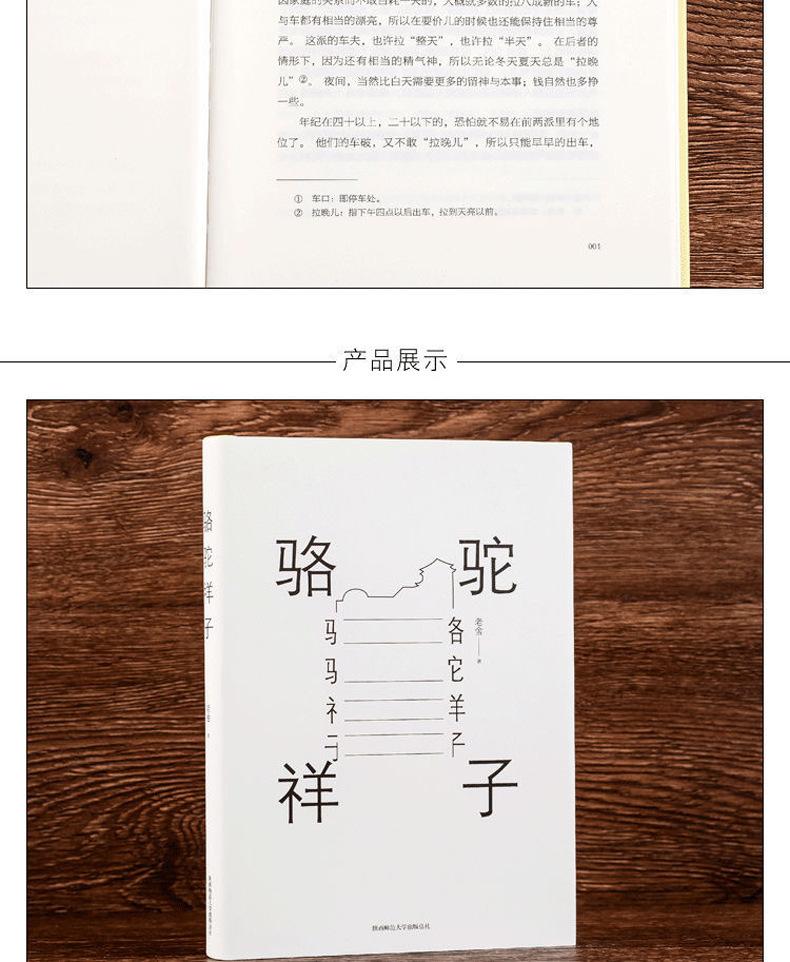 因家庭的关系而不敢白耗一天的，大概就多数的拉八成新的车；人
与车都有相当的漂亮，所以在要价儿的时候也还能保持住相当的尊
严。这派的车夫，也许拉“整天”，也许拉“半天”。在后者的
情形下，因为还有相当的精气神，所以无论冬天夏天总是“拉晚
儿”②。夜间，当然比白天需要更多的留神与本事；钱自然也多挣
一些。
年纪在四十以上，二十以下的，恐怕就不易在前两派里有个地
位了。他们的车破，又不敢“拉晚儿”，所以只能早早的出车，
① 车口：即停车处。
② 拉晚儿：指下午四点以后出车，拉到天亮以前。
001
产品展示
骆驼祥子
老舍 著
骆 驼
祥 子
老舍 著
陕西师范大学出版总社
陕西师范大学出版总社